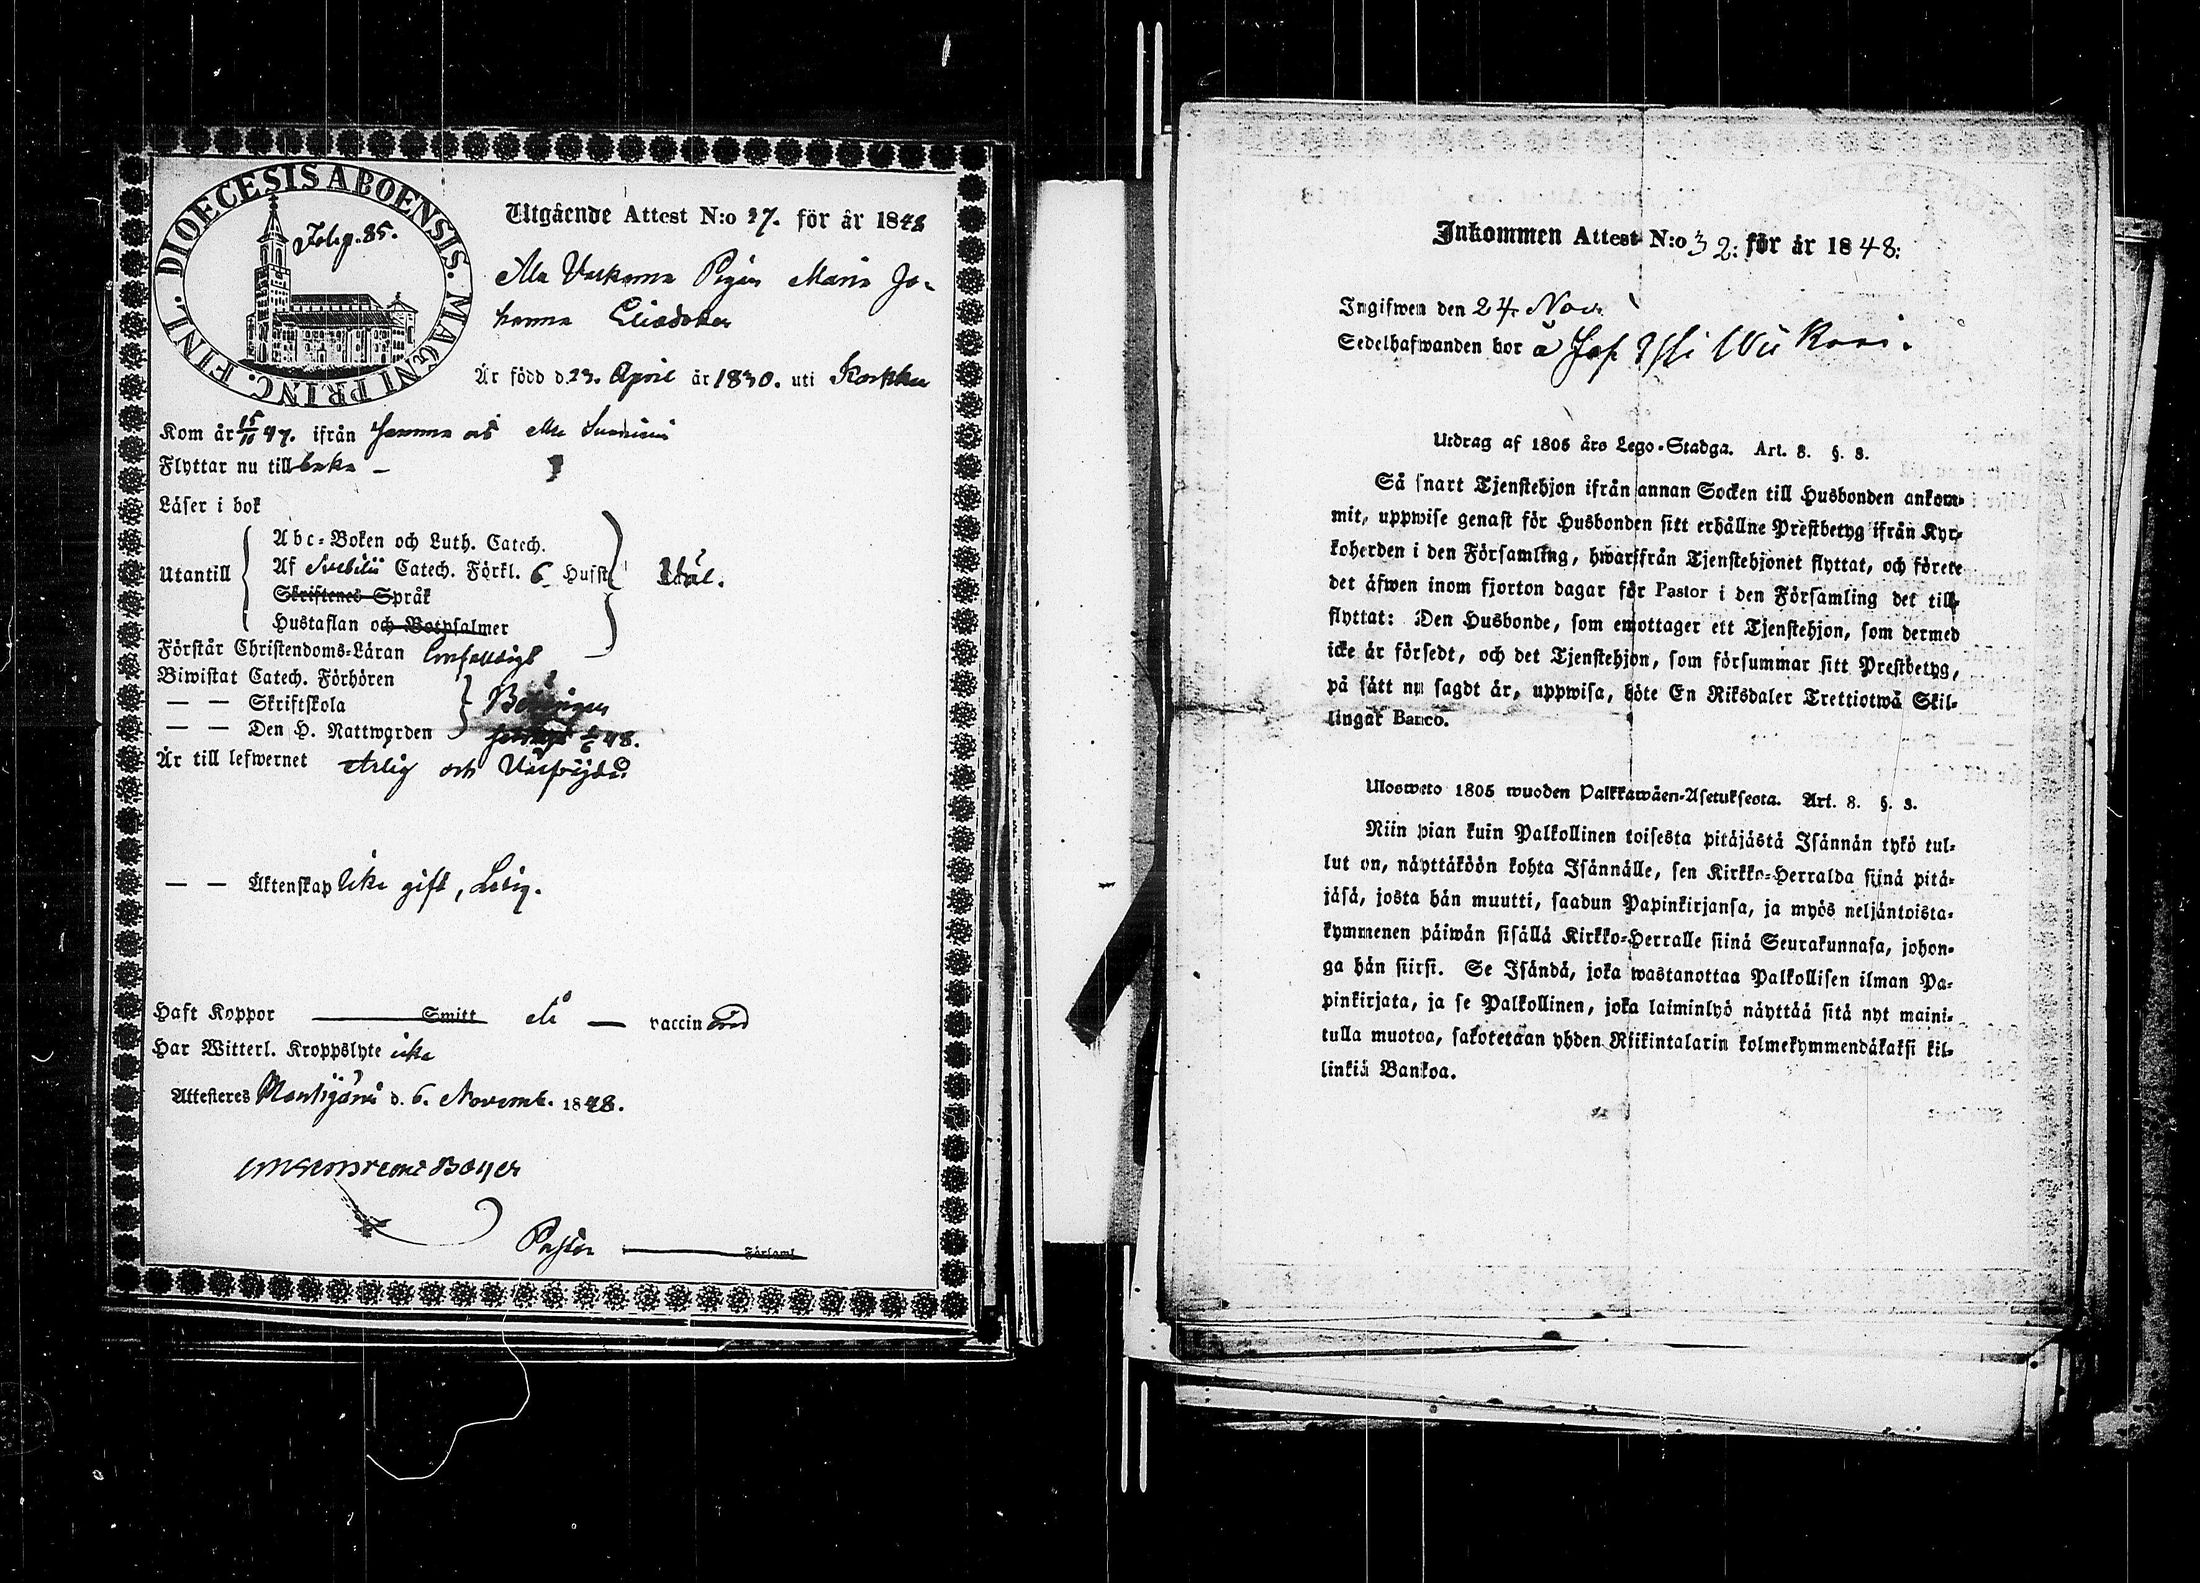 DIOECESIS ABOENSIS. MAGNI PRINC. FINL.
Fol. p. 85.
Utgående Attest N:o 37. för år 1848
Pigan Maria Jo-
hanna Eliædotter
Är född d. 23. April år 1830. uti Karkku
Kom år 15/10 47. ifrån
Flyttar nu tillbaka —
Läser i bok
Utantill
Abc-Boken och Luth. Catech.
Af Svebilii Catech. Förkl. 6 Hufst
Skriftenes Språk
Hustaflan och Botpsalmer
Förstår Christendoms-Läran Enfaldigt
Biwistat Catech. Förhören
— — Skriftskola
— — Den H. Nattwarden 48.
Är till lefwernet Ärlig och Välfrejdad
— — Äktenskap Icke gift, Ledig.
Haft Koppor — Smitt — vaccin
Har Witterl. Kroppslyte icke
Attesteres Mouhijärvi d. 6. Novemb. 1848.
Pastor Församl
Inkommen Attest N:o 32: för år 1848:
Ingifwen den 24. Nov.
Sedelhafwanden bor å
Utdrag af 1805 års Lego-Stadga. Art. 8. §. 3.
Så snart Tjenstehjon ifrån annan Socken till Husbonden ankom-
mit, uppwise genast för Husbonden sitt erhållne Prestbetyg ifrån Kyr-
koherden i den Församling, hwarifrån Tjenstehjonet flyttat, och förete
det äfwen inom fjorton dagar för Pastor i den Församling det till-
flyttat: Den Husbonde, som emottager ett Tjenstehjon, som dermed
icke är försedt, och det Tjenstehjon, som försummar sitt Prestbetyg,
på sätt nu sagdt är, uppwisa, böte En Riksdaler Trettiotwå Skil-
lingar Banco.
Ulosweto 1805 wuoden Palkkawäen-Asetuksesta. Art. 8. §. 3.
Niin pian kuin Palkollinen toisesta pitäjästä Isännän tykö tul-
lut on, näyttäköön kohta Isännälle, sen Kirkko-Herralda siinä pitä-
jäsä, josta hän muutti, saadun Papinkirjansa, ja myös neljäntoista-
kymmenen päiwän sisällä Kirkko-Herralle siinä Seurakunnasa, johon-
ga hän siirsi. Se Isändä, joka wastanottaa Palkollisen ilman Pa-
pinkirjata, ja se Palkollinen, joka laiminlyö näyttää sitä nyt maini-
tulla muotoa, sakotetaan yhden Riikintalarin kolmekymmendäkaksi kil-
linkiä Bankoa.